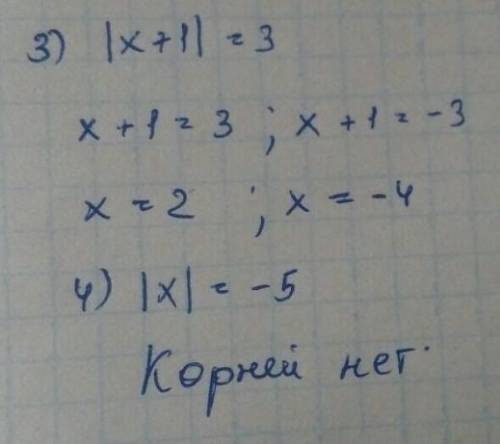 3) |x+1| = 3
x + 1 = 3 ; x + 1 = -3
x = 2 ; x = -4
4) |x| = -5
Корней нет.